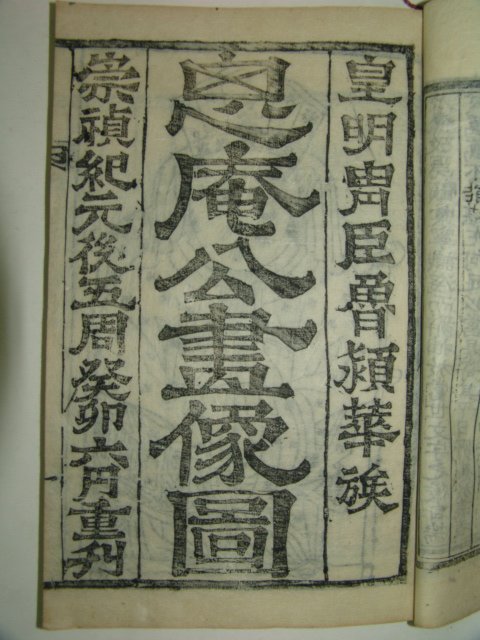 皇明冑臣潁華族
恖庵公畫像圖
崇禎紀元後五周癸卯六月重刊